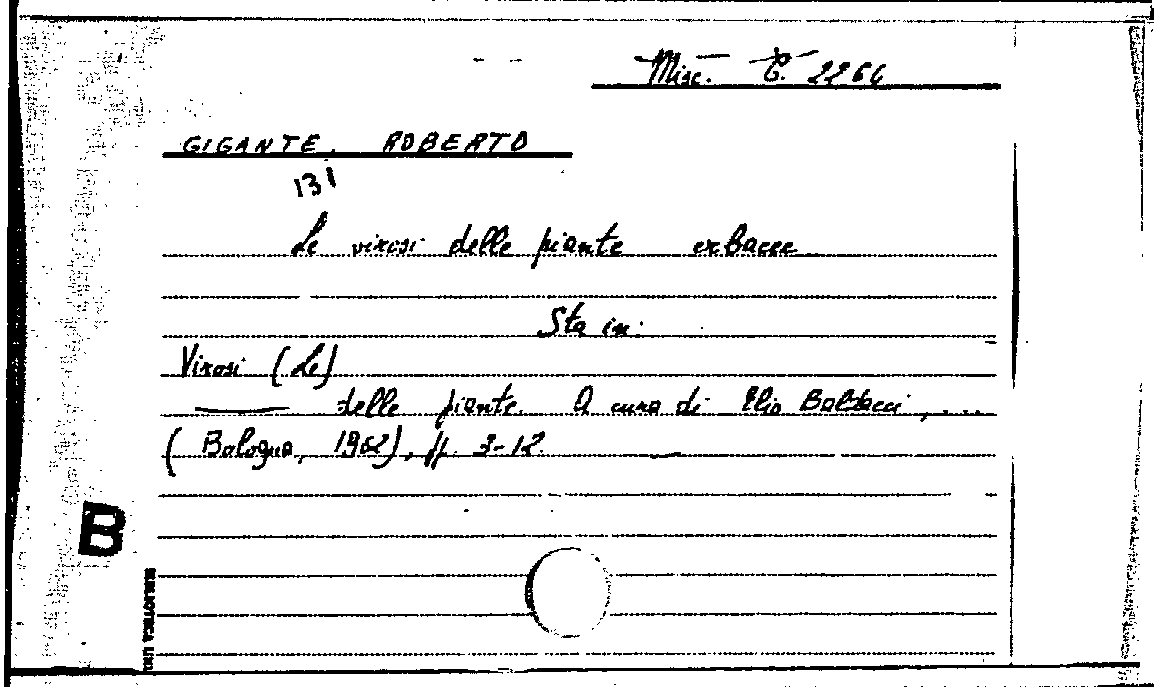 Misc. C. 2264
GIGANTE, ROBERTO
131
Le virosi delle piante erbacee
Sta in:
Virosi (Le)
——— delle piante. A cura di Elio Baldacci, ...
(Bologna, 1962), pp. 3-12.
B
BIBLIOTECA